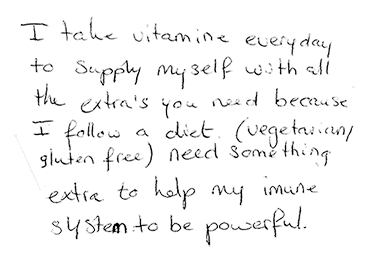 I take vitamine everyday
to supply myself with all
the extra's you need because
I follow a diet. (vegetarian/
gluten free) need something
extra to help my imune
system to be powerful.